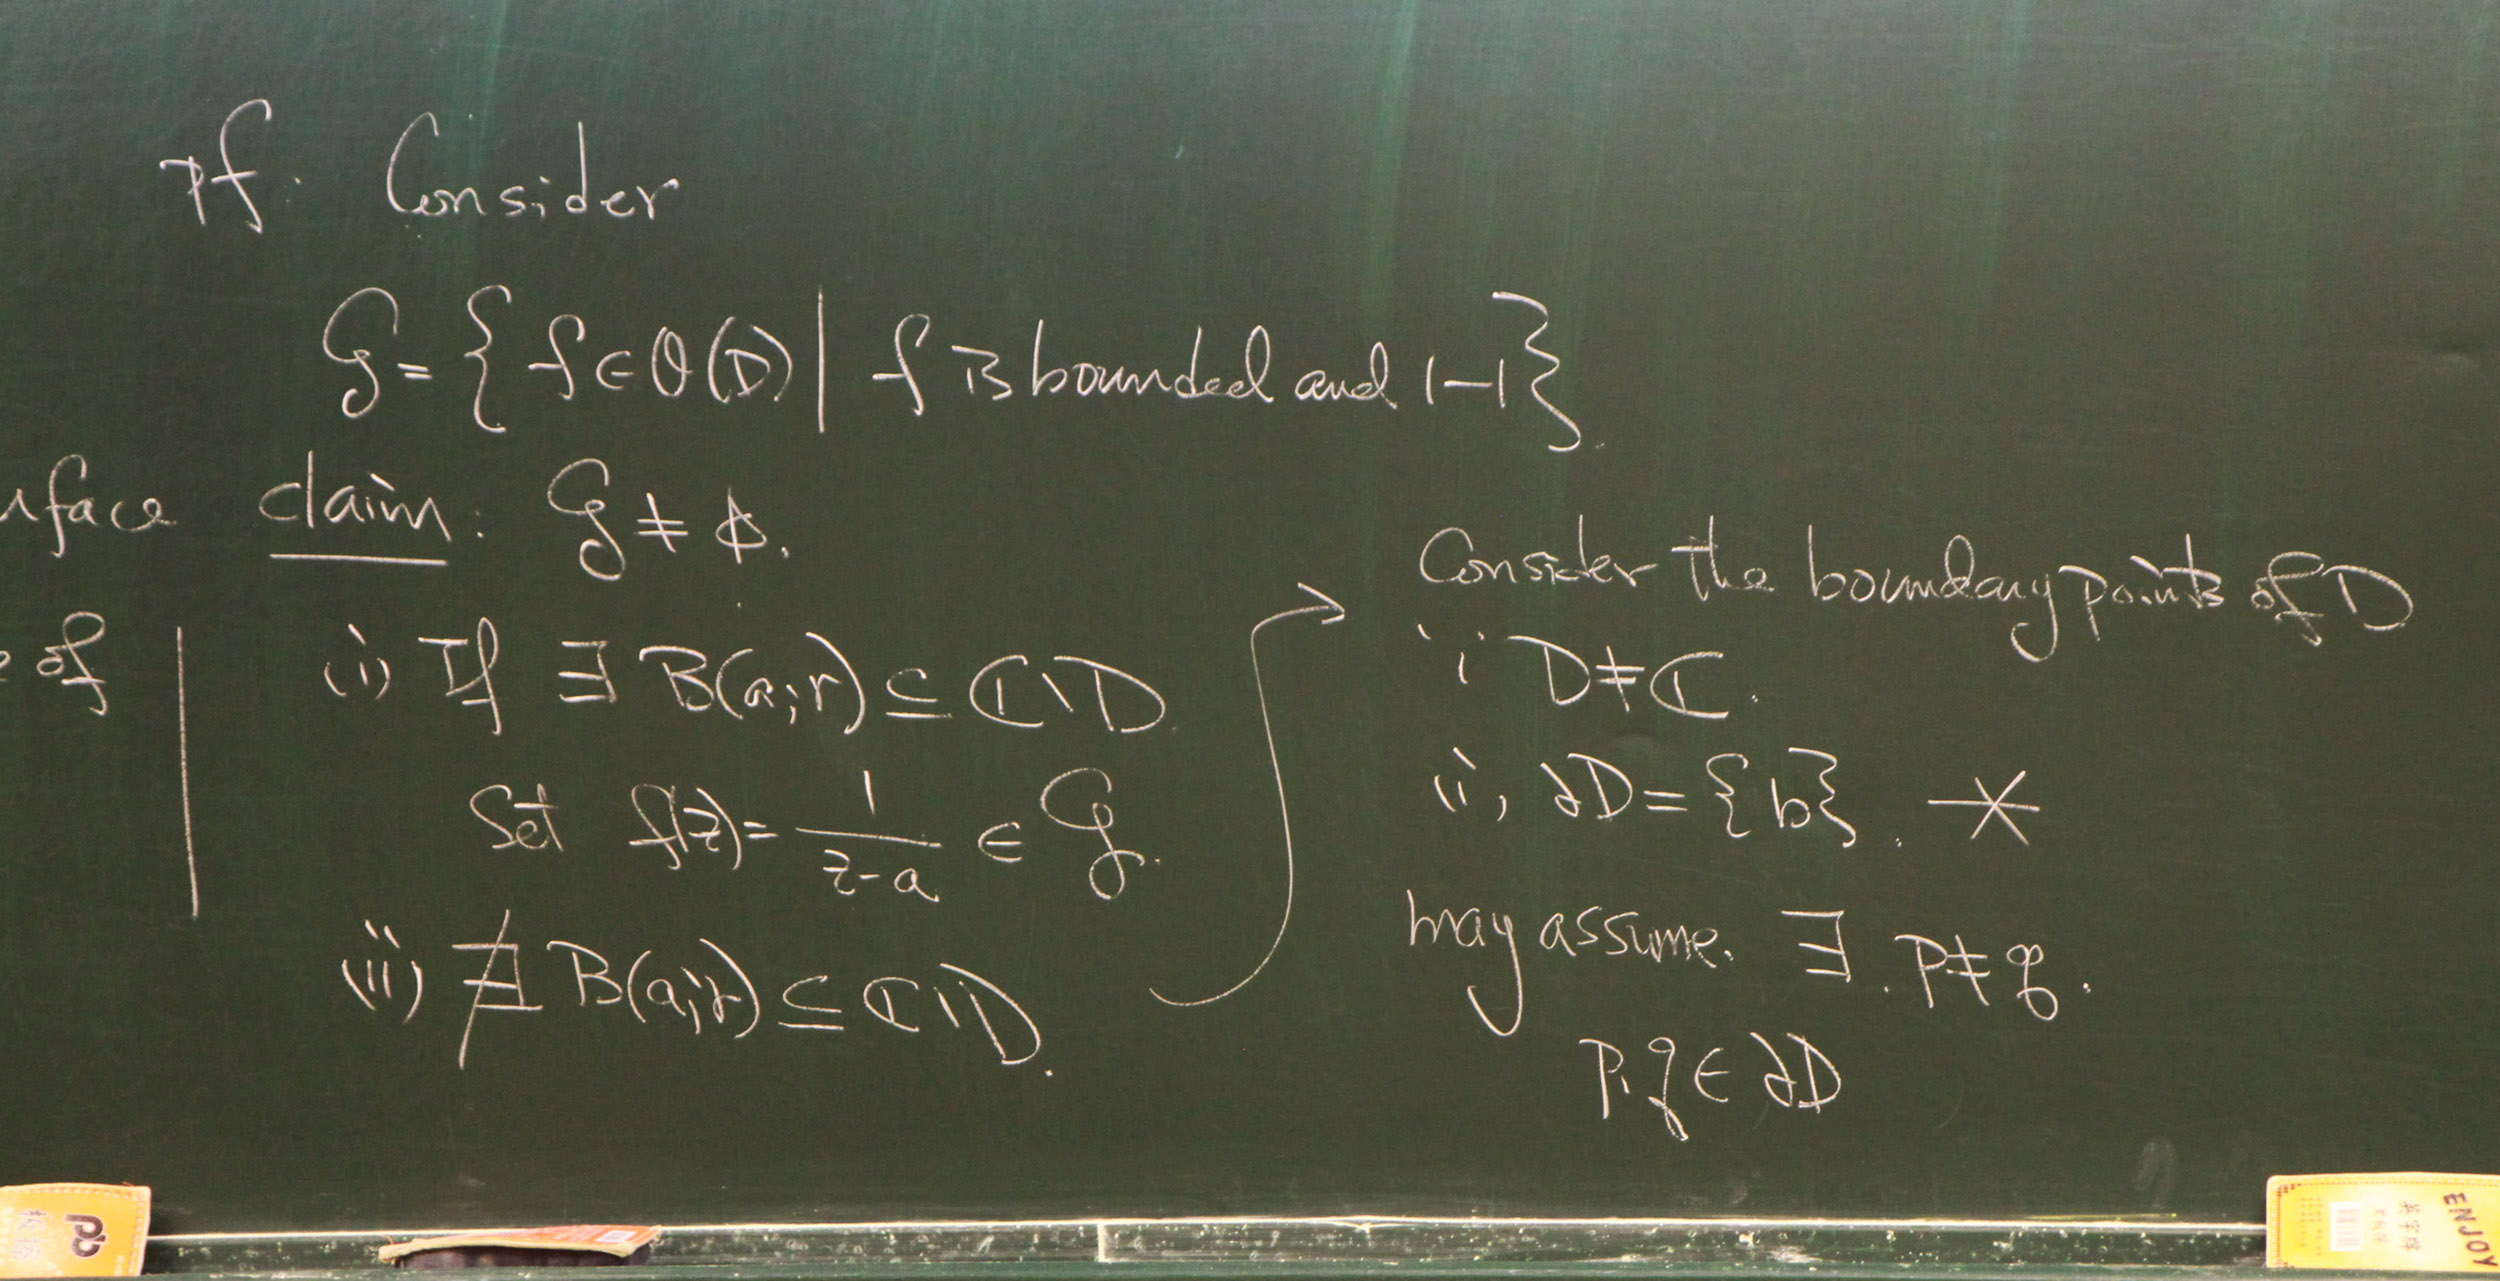 pf. Consider
G = { f ∈ O(D) | f is bounded and 1-1 }.
claim: G ≠ ∅.
(i) If ∃ B(a;r) ⊆ ℂ\D
Set f(z) = 1/(z-a) ∈ G.
(ii) ∄ B(a;r) ⊆ ℂ\D.
Consider the boundary points of D
i, D ≠ ℂ.
ii, ∂D = {b}. ⚹
may assume. ∃. p ≠ q.
p, q ∈ ∂D
of
ENJOY